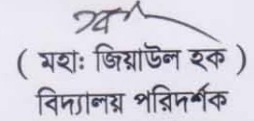 ( মহাঃ জিয়াউল হক )
বিদ্যালয় পরিদর্শক